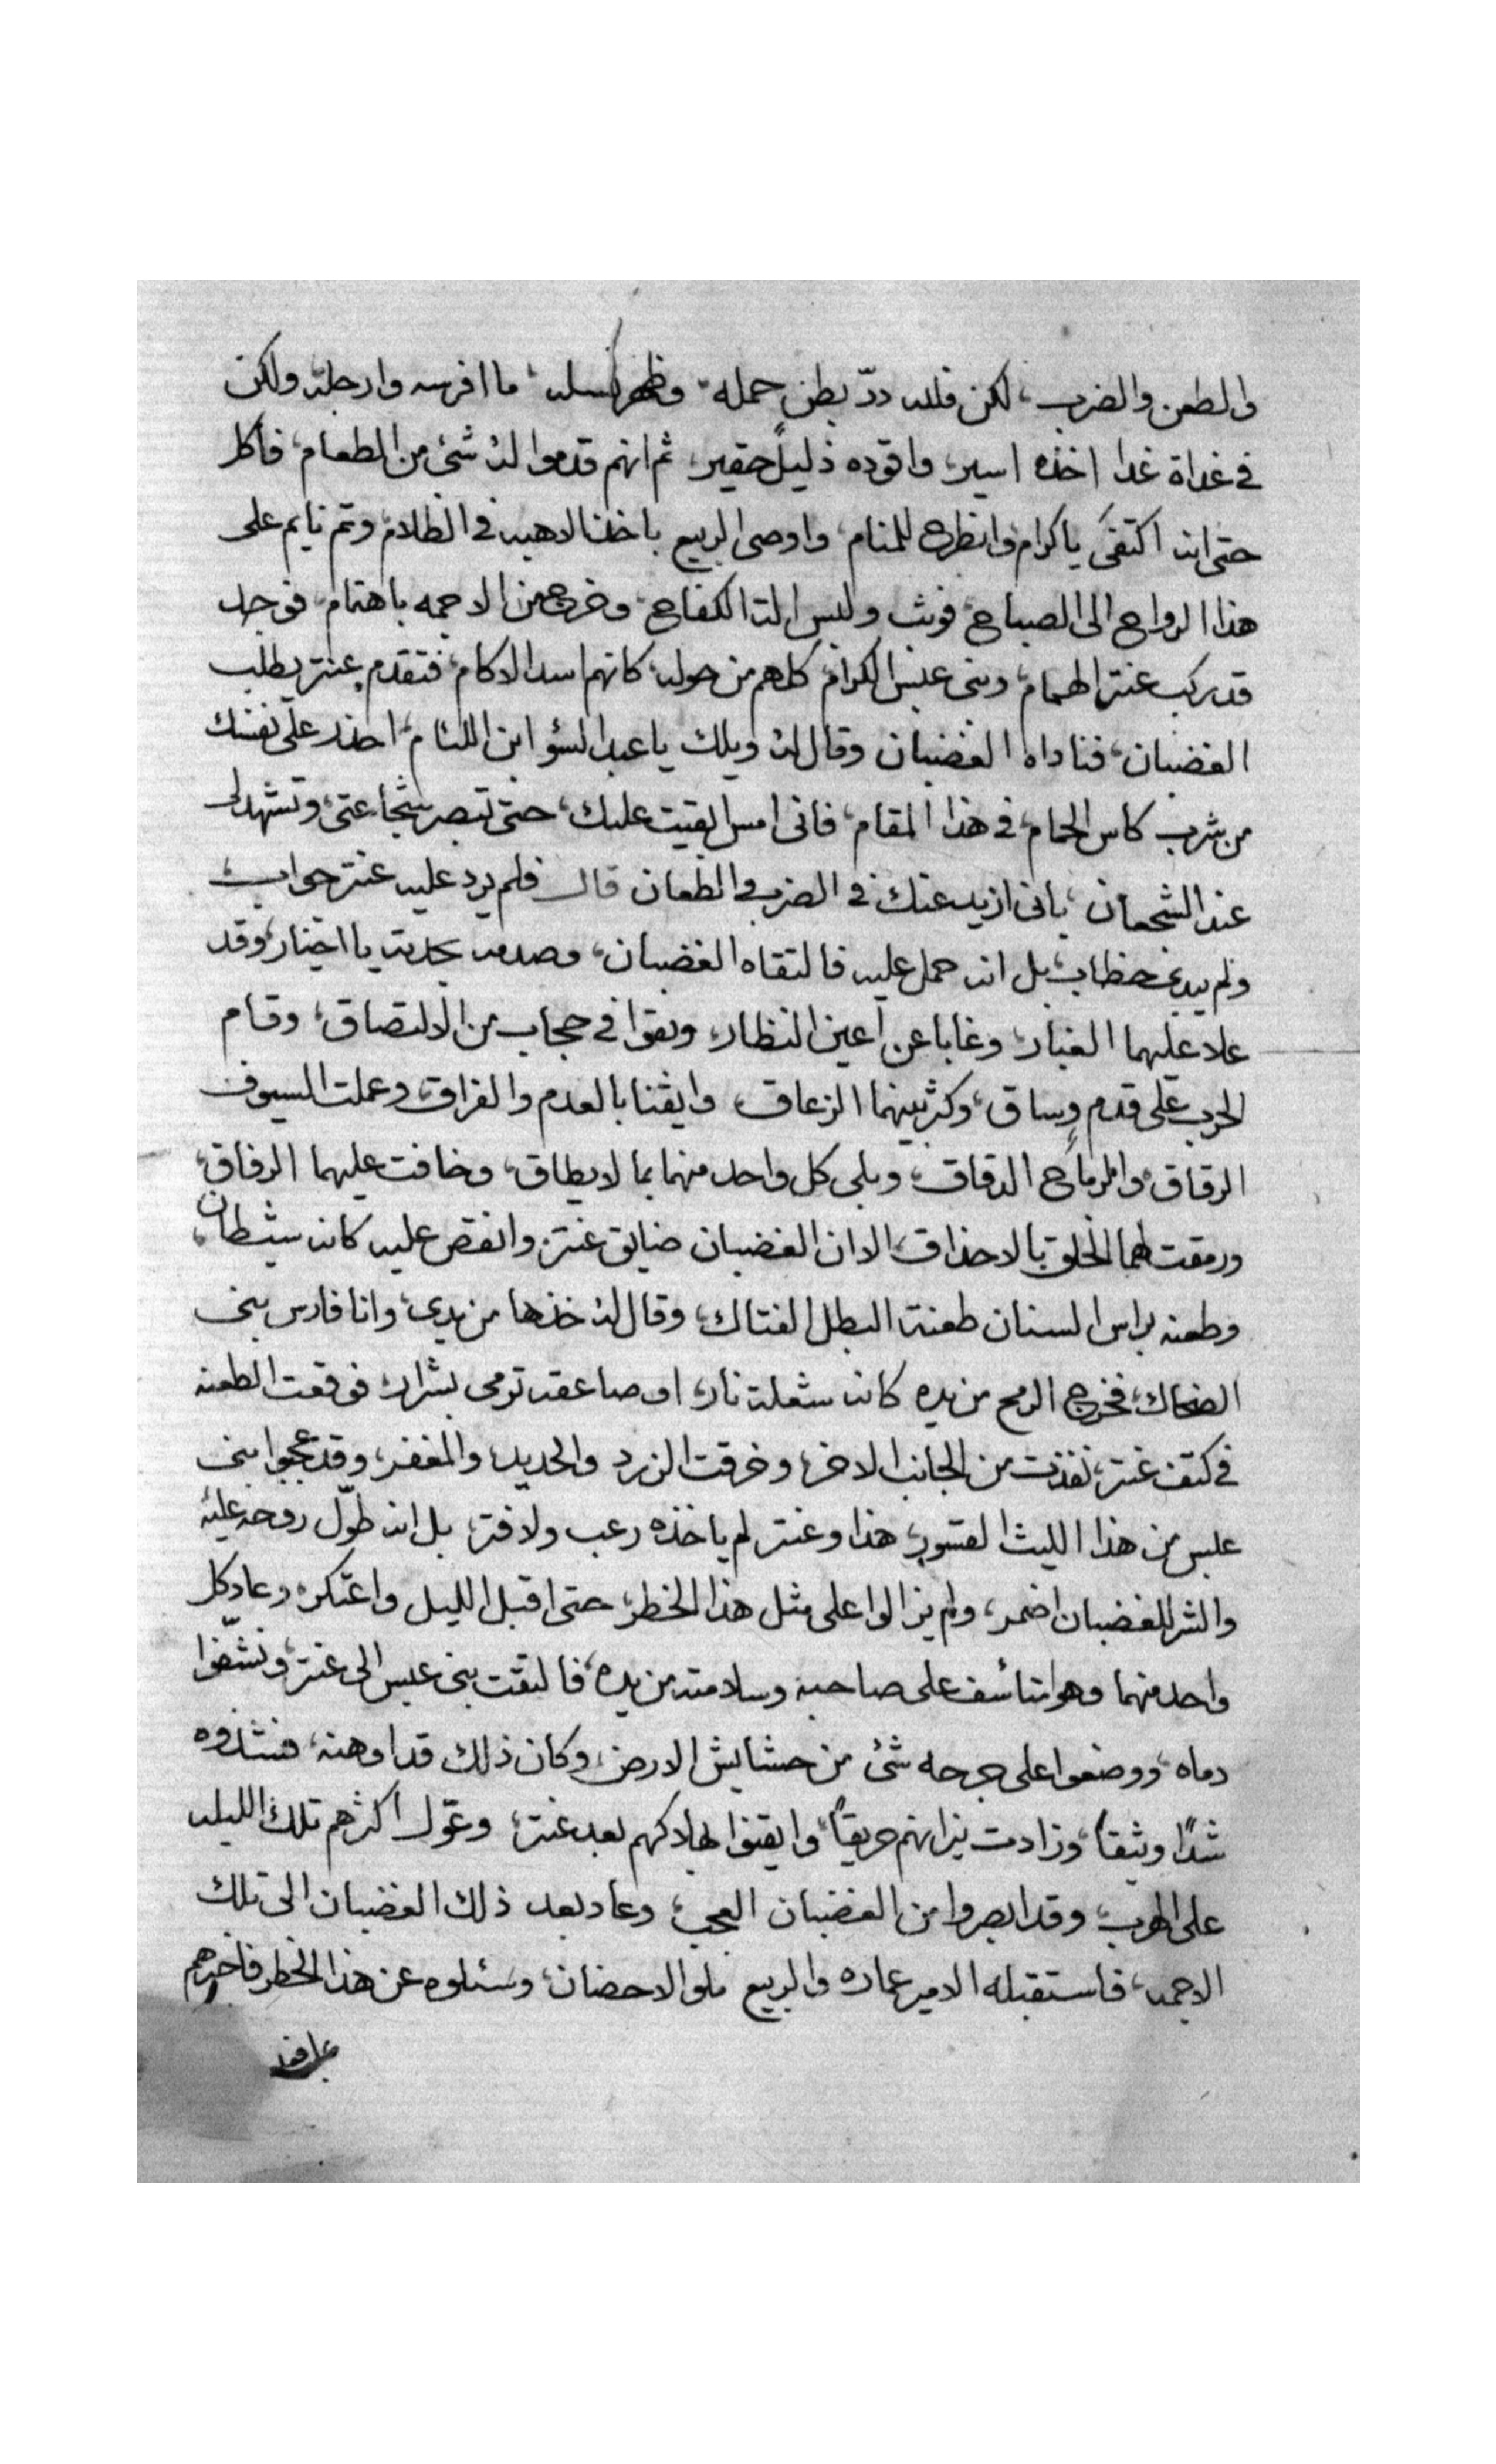 والطعن والضرب، لكن فلله درّ بطن حمله، وظهر نسله، ما افرسه وارجله ولكن
في غداة غدا اخذه اسير، واقوده ذليلاً حقير، ثم انهم قدموا له شئ من الطعام، فاكل
حتى انه اكتفى يا كرام، وانطرح للمنام، واوصى الربيع باخذ الاهبه في الظلام، وتم نايم على
هذا الرواح الى الصباح، فوثب ولبس الة الكفاح، وخرج من الاجمه باهتمام، فوجد
قد ركب عنتر الهمام، وبنى عبس الكرام، كلهم من حوله، كانهم اسد الاكام، فتقدم عنتر يطلب
الغضبان، فناداه الغضبان وقال له ويلك يا عبد السؤ ابن اللئام، احذر على نفسك
من شرب كاس الحمام، في هذا المقام، فانى امس ابقيت عليك، حتى تبصر شجاعتى، وتشهد لى
عند الشجعان، بانى ازيد عنك في الضرب والطعان قال فلم يرد عليه عنتر جواب،
ولم يبدى خطاب، بل انه حمل عليه فالتقاه الغضبان، وصدمه بحدته يا اخيار، وقد
علا عليهما الغبار، وغابا عن أعين النظار، وبقوا في حجاب من الالتصاق، وقام
الحرب على قدم وساق، وكثر بينهما الزعاق، وايقنا بالعدم والفراق، وعملت السيوف
الرقاق، والرماح الدقاق، وبلى كل واحد منهما بما لا يطاق، وخافت عليهما الرفاق،
ورمقت لهما الخلق بالاحذاق، الا ان الغضبان ضايق عنتر، وانقض عليه كانه شيطان،
وطعنه براس السنان طعنة البطل الفتاك، وقال له خذها من يدى، وانا فارس بنى
الضحاك، فخرج الرمح من يده كانه شعلة نار، او صاعقه ترمى بشرار، فوقعت الطعنه
في كتف عنتر، نفذت من الجانب الاخر، وخرقت الزرد والحديد، والمغفر، وقد عجبوا بنى
عبس من هذا الليث القسور، هذا وعنتر لم ياخذه رعب ولا فتر، بل انه طوّل روحه عليه
والشر للغضبان اضمر، ولم يزالوا على مثل هذا الخطر، حتى اقبل الليل واعتكر، وعاد كل
واحد منهما وهو متأسف على صاحبه وسلامته من يده، فالتقت بنى عبس الى عنتر، ونشّفوا
دماه، ووضعوا على جرحه شئ من حشايش الارض، وكان ذلك قد اوهنه، فشدّوه
شدًا وثيقاً، وزادت نيرانهم حريقاً، وايقنوا بهلاكهم بعد عنتر، وعوّل اكثرهم تلك الليله
على الهرب، وقد ابصروا من الغضبان العجب، وعاد بعد ذلك الغضبان الى تلك
الاجمه، فاستقبله الامير عماره والربيع ملو الاحضان، وسئلوه عن هذا الخطر فاخبرهم